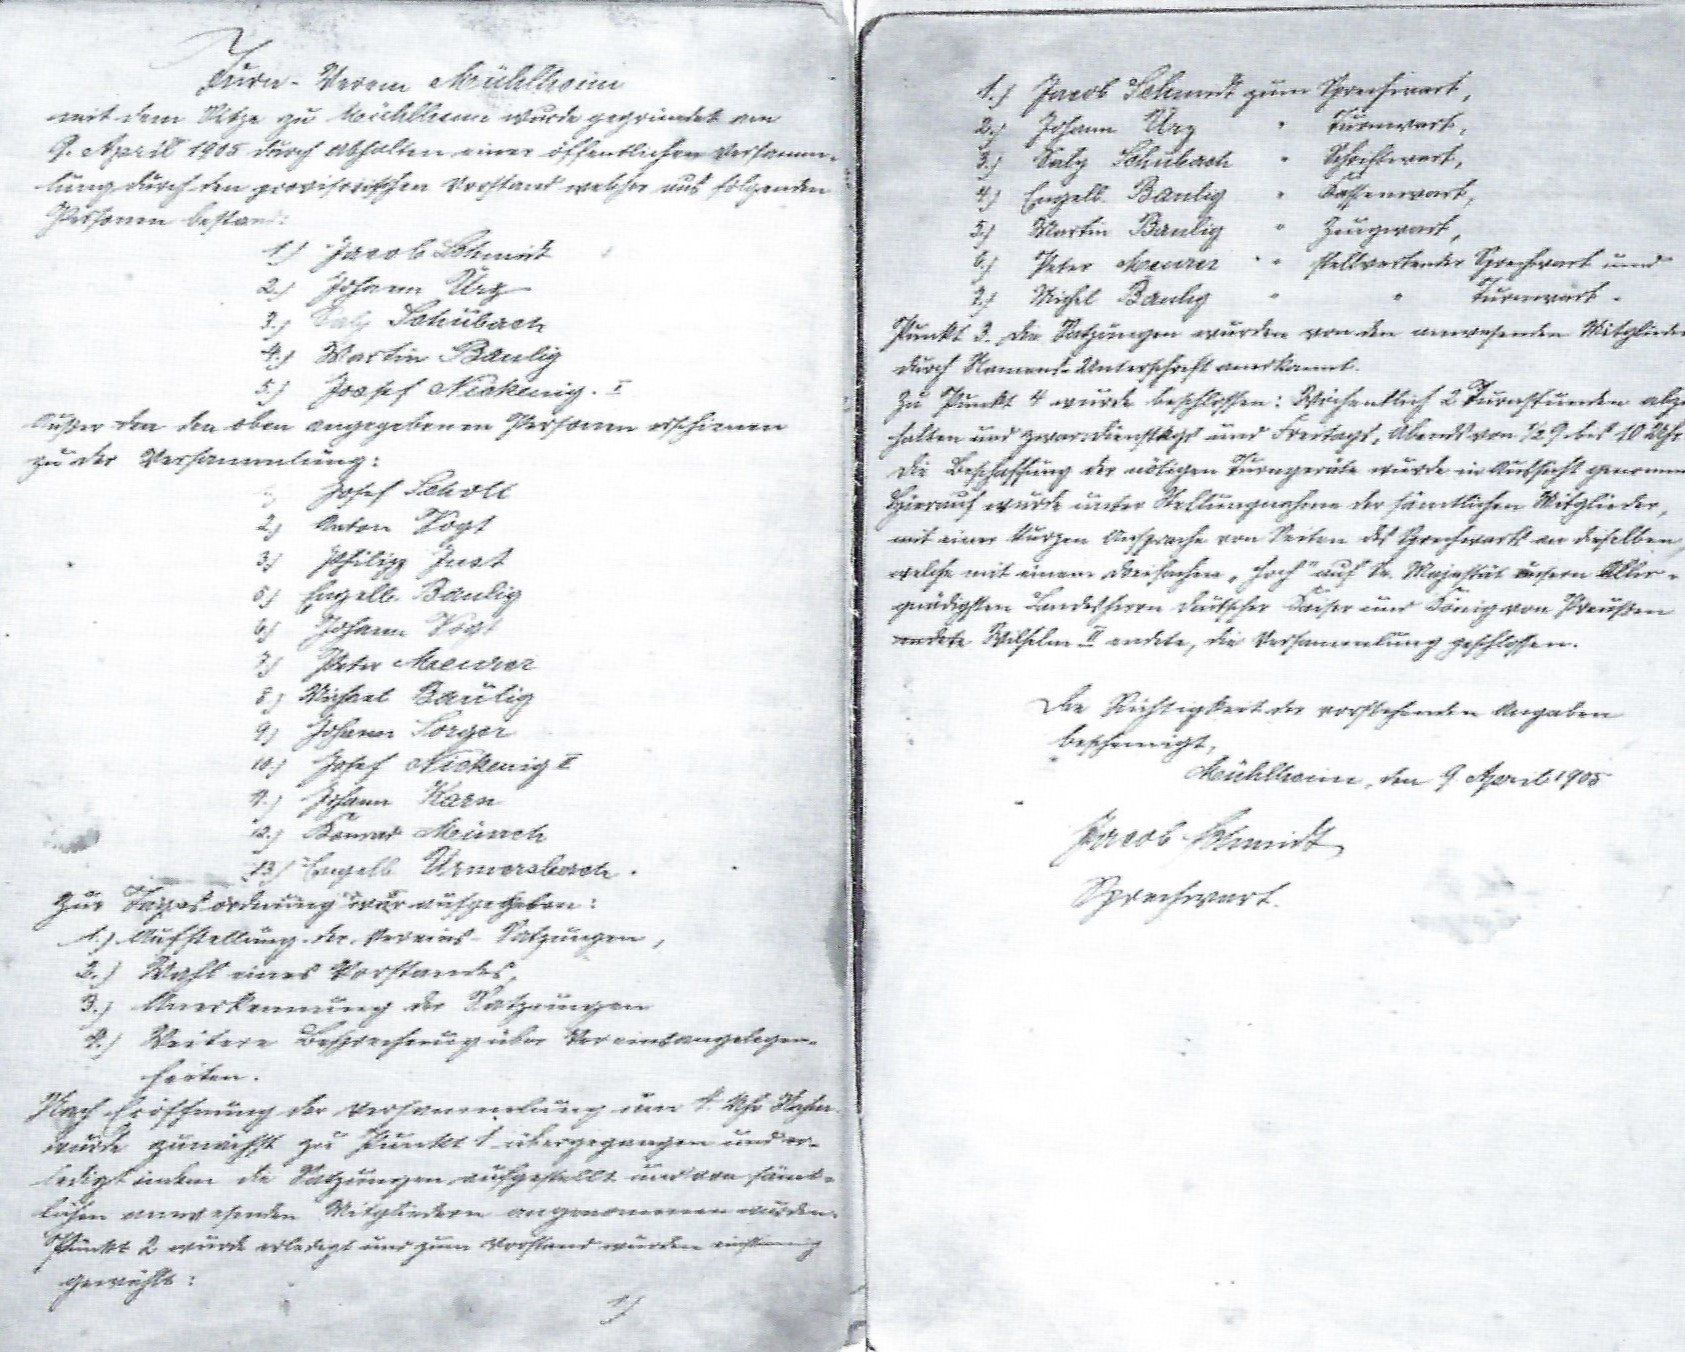 Turn-Verein Mühlheim
mit dem Sitze zu Mühlheim wurde gegründet am
9. April 1905 durch abhalten einer öffentlichen Versamm-
lung durch den provisorischen Vorstand welcher aus folgenden
Personen bestand:
1.) Jacob Schmidt
2.) Johann Urz
3.) Salz Schübach
4.) Martin Baulig
5.) Josef Nickenig. I
Außer den den oben angegebenen Personen erschienen
zu der Versammlung:
Josef Scholl
2.) Anton Vogt
3.) Philipp Just
5.) Engelb. Baulig
6.) Johann Vogt
7.) Peter Meurer
8.) Michael Baulig
9.) Johann Sorger
10.) Josef Nickenig II
11.) Johann Karn
12.) Konrad
13.) Engelb. Urmersbach.
Zur Tagesordnung war aufgegeben:
1.) Aufstellung der Vereins-Satzungen,
2.) Wahl eines Vorstandes,
3.) Anerkennung der Satzungen
4.) Weitere Besprechung über Vereinsangelegen-
heiten.
Nach Eröffnung der Versammlung um 4 Uhr Nachm.
wurde zunächst zu Punkt 1 übergegangen und er-
ledigt indem die Satzungen aufgestellt und von sämt-
lichen anwesenden Mitgliedern angenommen wurden.
Punkt 2 wurde erledigt und zum Vorstand wurden einstimmig
gewählt:
1)
1.) Jacob Schmidt zum Sprechwart,
2.) Johann Urz " Turnwart,
3.) Salz Schübach " Schriftwart,
4.) Engelb. Baulig " Kassenwart,
5.) Martin Baulig " Zeugwart,
6.) Peter Meurer " " stellvertender Sprechwart und
7.) Michel Baulig " " Turnwart.
Punkt 3. Die Satzungen wurden von den anwesenden Mitglieder
durch Namens-Unterschrift anerkannt.
Zu Punkt 4 wurde beschlossen: Wöchentlich 2 Turnstunden abzu
halten und zwar dienstags und Freitags, Abends von ½ 9 bis 10 Uhr
Die Beschaffung der nötigen Turngeräte wurde in Aussicht genomm
Hierauf wurde unter Stellungnahme der sämtlichen Mitglieder,
mit einer kurzen Ansprache von Seiten des Sprechwarts an dieselben,
welche mit einem dreifachen „Hoch" auf Sr. Majestät unsern Aller-
gnädigsten Landesherrn deutscher Kaiser und König von Preußen
endete Wilhelm II endete, die Versammlung geschlossen.
Die Richtigkeit der vorstehenden Angaben
bescheinigt,
Mühlheim, den 9 April 1905
Jacob Schmidt
Sprechwart.